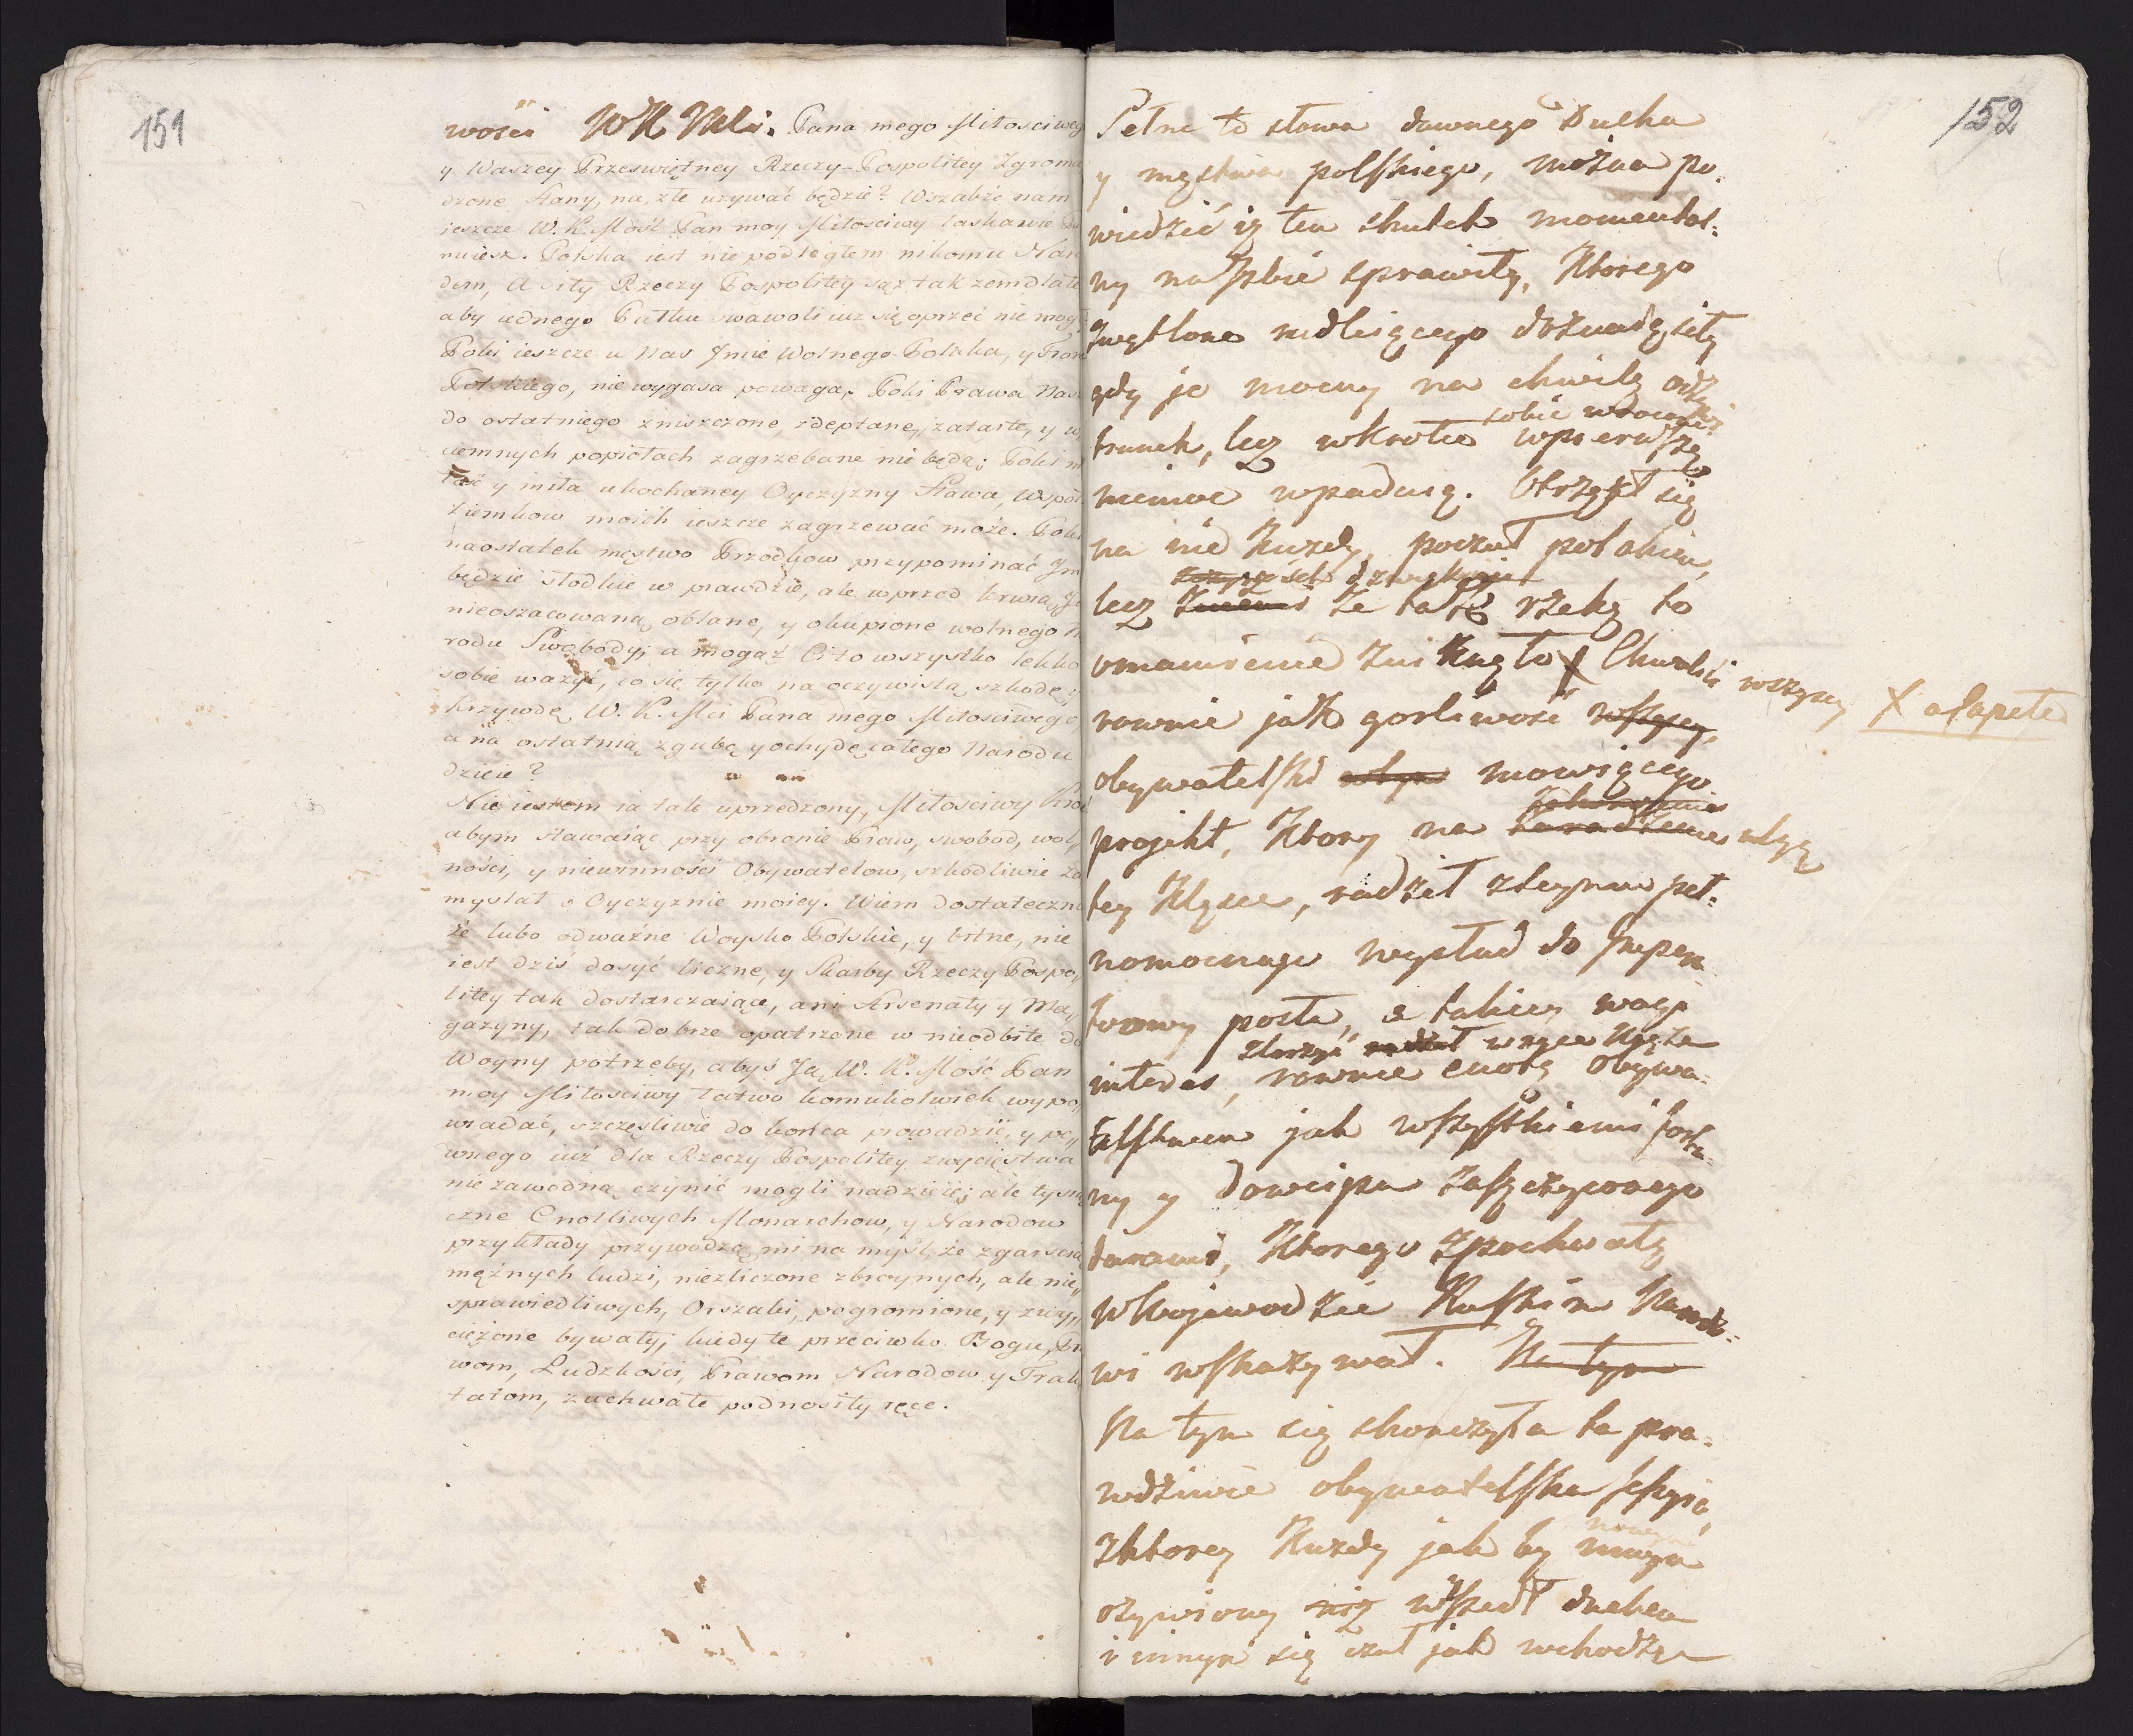 151
wości WK Mści. Pana mego Miłosciweg
y Waszey Przeswiętney Rzeczy-Pospolitey Zgroma
dzone Stany, na złe używać będzie? Wszakże nam
ieszcze W. K. Mość Pan moy Miłosciwy łaskawie
nuiesz. Polska iest niepodległem nikomu Nar
dem, A siły Rzeczy Pospolitey sąż tak zemdlałe
aby iednego Pułku swawoli iuz się oprzeć nie mog
Poki ieszcze u Nas Imie Wolnego Polaka, y Tron
Polskiego, nie wygasa powaga, Poki Prawa Nas
do ostatniego zniszczone, zdeptane, zatarte, y w
ciemnych popiołach zagrzebane nie będą; Poki m
łość y miła ukochaney Oyczyzny Sława, Współ
Ziemkow moich ieszcze zagrzewać może. Poki
naostatek męstwo Przodkow przypominać Im
będzie słodkie w prawdzie, ale wprzod krwią Ic
nieoszacowaną oblane, y okupione wolnego N
rodu Swobody; a mogaż Ci to wszystko lekko
sobie ważyć, co się tylko na oczywistą szkodę, y
krzywdę W. K. Mci Pana mego Miłosciwego,
a na ostatnią zgubę y ochydę całego Narodu
dzieie?
Nie iestem ia tak uprzedzony, Miłosciwy Kro
abym stawaiąc przy obronie Praw, swobod, wol„
ności, y niewinności Obywatelow, szkodliwie za
myslał o Oyczyznie moiey. Wiem dostateczn
że lubo odważne Woysko Polskie, y bitne, nie
iest dziś dosyć liczne, y Skarby Rzeczy Pospo„
litey tak dostarczaiące, ani Arsenały y Ma„
gazyny, tak dobrze opatrzone w nieodbite do
Woyny potrzeby, abyś Ją W. K. Mość Pan
moy Miłosciwy łatwo komukolwiek wypo„
wiadać, szczęsliwie do końca prowadzić, y pe„
wnego iuż dla Rzeczy Pospolitey zwycięstwa
niezawodną czynić mogli nadzieię; ale tysią
czne Cnotliwych Monarchow, y Narodow
przykłady przywodzą mi na myśl, że z garscią
mężnych ludzi, niezliczone zbroynych, ale nie„
sprawiedliwych, Orszaki, pogromione, y zwy„
ciężone bywały; kiedy te przeciwko Bogu, Pra
wom, Ludzkości, Prawom Narodow y Trak
tatom, zuchwałe podnosiły ręce.
152
Pełne te słowa dawnego Ducha
y męstwa polskiego, można po:
wiedzieć iż ten skutek momental:
ny na Izbie sprawiły, Ktorego
zwątlone mdleiącego doznaią siły
gdy je mocny na chwilę ożyi
sobie
trunek, lecz wkrotce w pierwszę
niemoc wpadaią. Otrząsł się
na nie Kużdy, poczuł polakiem,
lecz że tak rzekę to
omamienie znikneło X Chwalili wszyscy
X a lapete
rownie jak gorliwość wszyscy,
obywatelski mowiącego
projekt, Ktory na zaradzenie ulgę
tey Klęsce, radził z Seymu peł:
nomocnego wysłać do Impera
torowy posła, a takiey wagi
złożyć radził w ręce Męża
interes, rownie cnotą Obywa:
telskiem jak wszystkiemi fortu:
ny y dowcipu zaszczyconego
darami, Ktorego z pochwałą
w Wojewodzie Ruskim Narodo:
wi wskazywał. Na tym
Na tym się skonczyła ta pra:
wdziwie obywatelska sessyia,
nowym
z ktorey Kużdy jak by innym
ożywiony niż wszedł duchem
i innym się czuł jak wchodząc